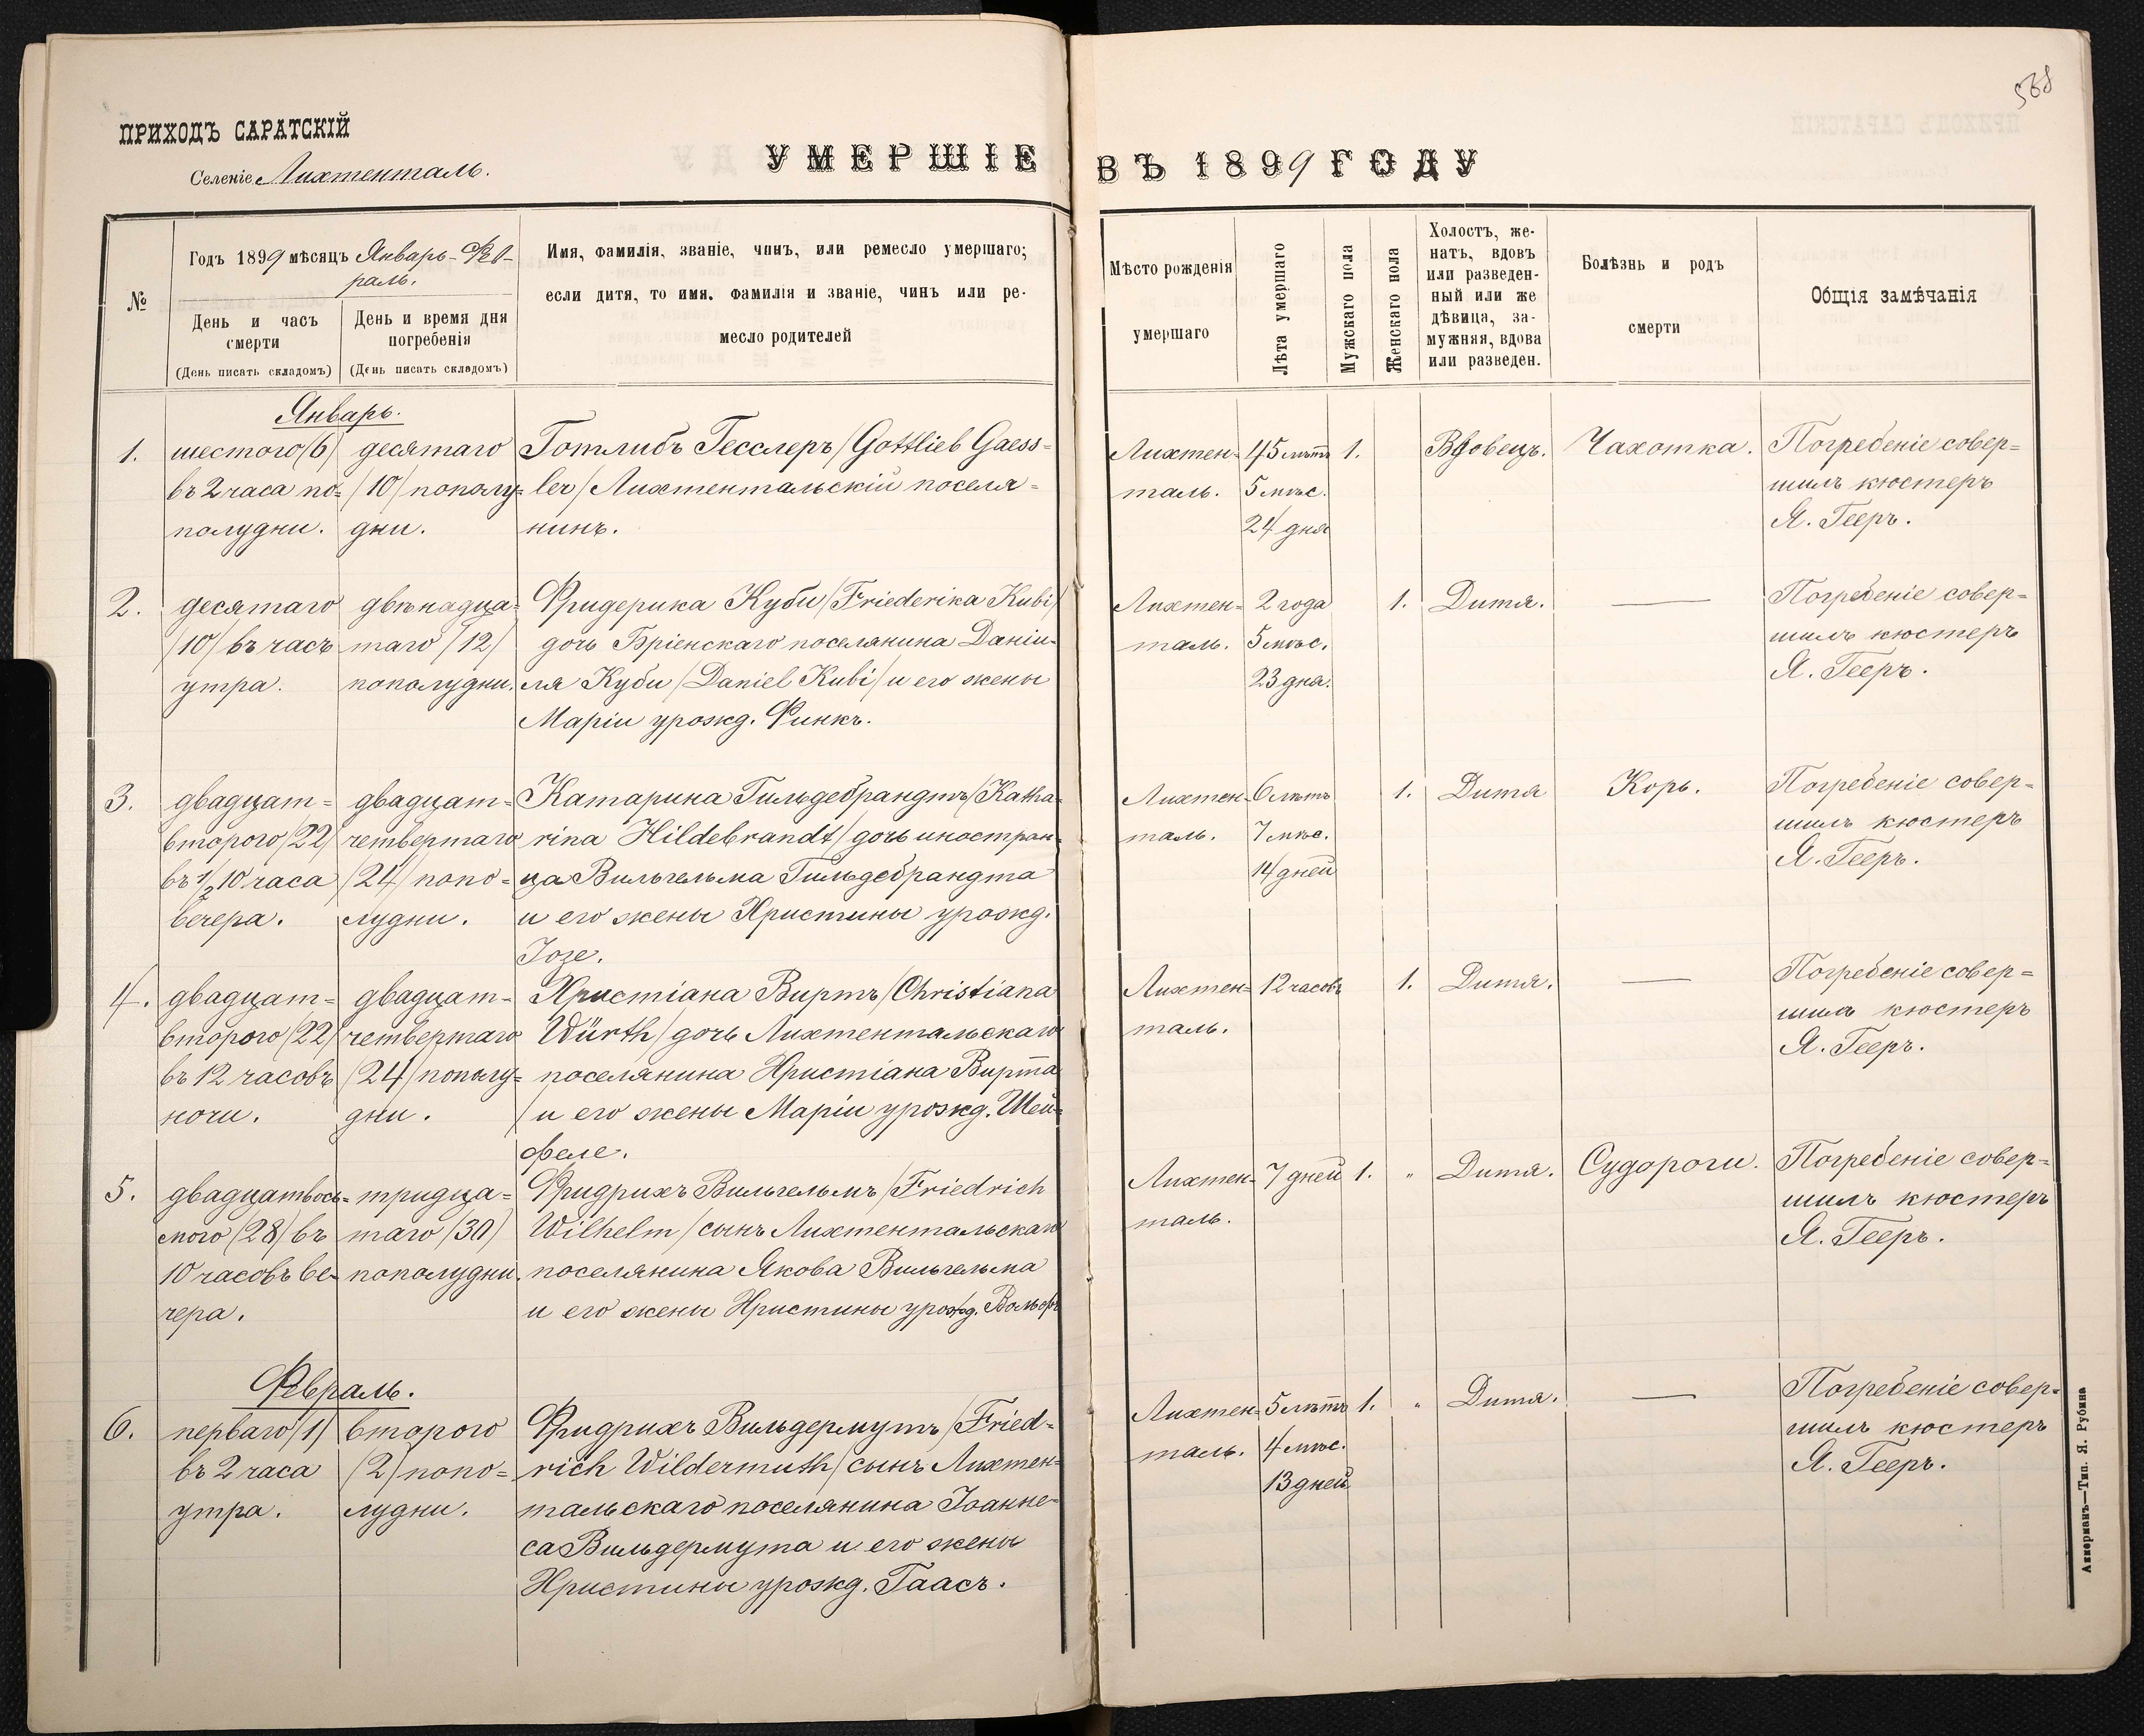 568
ПРИХОДЪ САРАТСКІЙ
Селеніе Лихтенталь.
УМЕРШІЕ ВЪ 1899 ГОДУ
№
Годъ 1899 мѣсяцъ Январь-Фев-
раль.
День и часъ
смерти
(День писать складомъ)
День и время дня
погребенія
(День писать складомъ)
Имя, фамилія, званіе, чинъ, или ремесло умершаго;
если дитя, то имя. фамилія и званіе, чинъ или ре-
месло родителей
Мѣсто рожденія
умершаго
Лѣта умершаго
Мужскаго пола
Женскаго пола
Холостъ, же-
натъ, вдовъ
или разведен-
ный или же
дѣвица, за-
мужняя, вдова
или разведен.
Болѣзнь и родъ
смерти
Общія замѣчанія
Январь.
1.
шестого /6/
въ 2 часа по=
полудни.
десятаго
/10/ пополу=
дни.
Готлибъ Гесслеръ /Gottlieb Gaess=
ler/ Лихтентальскій поселя=
нинъ.
Лихтен=
таль.
45 лѣтъ
5 мѣс.
24 дня
1.
Вдовецъ.
Чахотка.
Погребеніе совер=
шилъ кюстеръ
Я. Гееръ.
2.
десятаго
/10/ въ часъ
утра.
двѣнадца=
таго /12/
пополудни.
Фридерика Куби /Friederika Kubi/
дочь Бріенскаго поселянина Даніи-
ля Куби /Daniel Kubi/ и его жены
Маріи урожд. Финкъ.
Лихтен=
таль.
2 года
5 мѣс.
23 дня.
1.
Дитя.
—
Погребеніе совер=
шилъ кюстеръ
Я. Гееръ.
3.
двадцат=
второго /22/
въ 1/2 10 часа
вечера.
двадцат=
четвертаго
/24/ попо=
лудни.
Катарина Гильдебрандтъ /Katha=
rina Hildebrandt/ дочь иностран=
ца Вильгельма Гильдебрандта
и его жены Христины урожд.
Іозе.
Лихтен=
таль.
6 лѣтъ
7 мѣс.
14 дней
1.
Дитя
Корь.
Погребеніе совер=
шилъ кюстеръ
Я. Гееръ.
4.
двадцат=
второго /22/
въ 12 часовъ
ночи.
двадцат=
четвертаго
/24/ пополу=
дни.
Христіана Виртъ /Christiana
Würth/ дочь Лихтентальскаго
поселянина Христіана Вирта
и его жены Маріи урожд. Шей=
феле.
Лихтен=
таль.
12 часовъ
1.
Дитя.
—
Погребеніе совер=
шилъ кюстеръ
Я. Гееръ.
5.
двадцатвось=
мого /28/ въ
10 часовъ ве=
чера.
тридца=
таго /30/
пополудни.
Фридрихъ Вильгельмъ /Friedrich
Wilhelm/ сынъ Лихтентальскаго
поселянина Якова Вильгельма
и его жены Христины урожд. Вольфъ
Лихтен=
таль.
7 дней
1.
"
Дитя.
Судороги.
Погребеніе совер=
шилъ кюстеръ
Я. Гееръ.
Февраль.
6.
перваго /1/
въ 2 часа
утра.
второго
/2/ попо=
лудни.
Фридрихъ Вильдермутъ /Fried=
rich Wildermuth/ сынъ Лихтен=
тальскаго поселянина Іоанне-
са Вильдермута и его жены
Христины урожд. Гаасъ.
Лихтен=
таль.
5 лѣтъ
4 мѣс.
13 дней
1.
"
Дитя.
—
Погребеніе совер=
шилъ кюстеръ
Я. Гееръ.
Аккерманъ—Тип. Я. Рубина